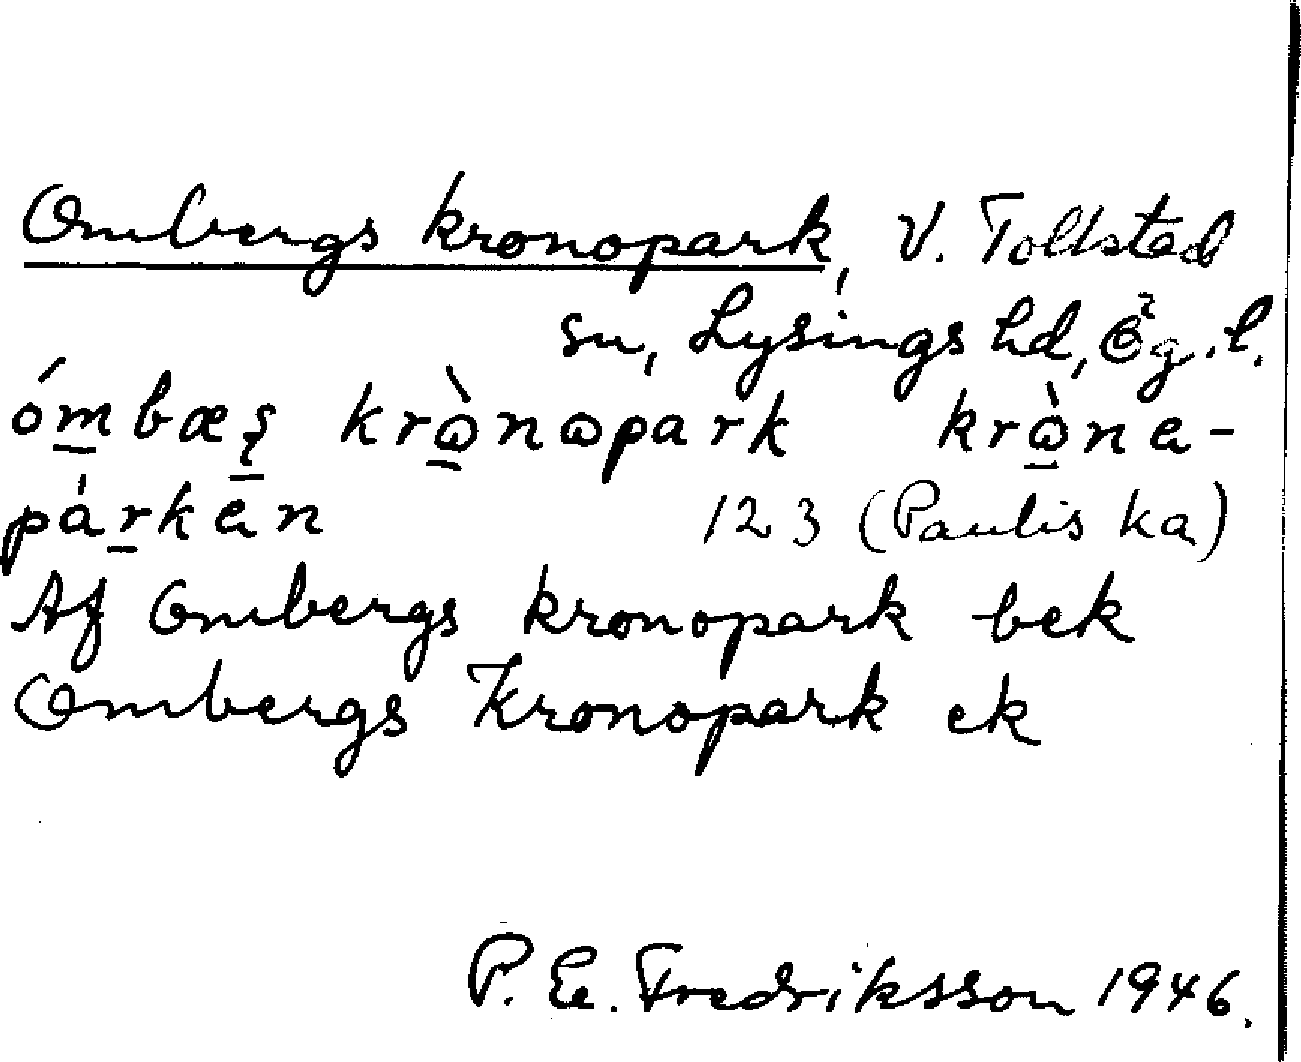 Ombergs kronopark, V. Tollstad
sn, Lysings hd, Ög. l.
óm̲bæş̲ krὼ̲nωpark krὼ̲na-
pár̲kȧn 123 (Paulis ka)
Af Ombergs kronopark bek
Ombergs Kronopark ek
P. E. Fredriksson 1946.